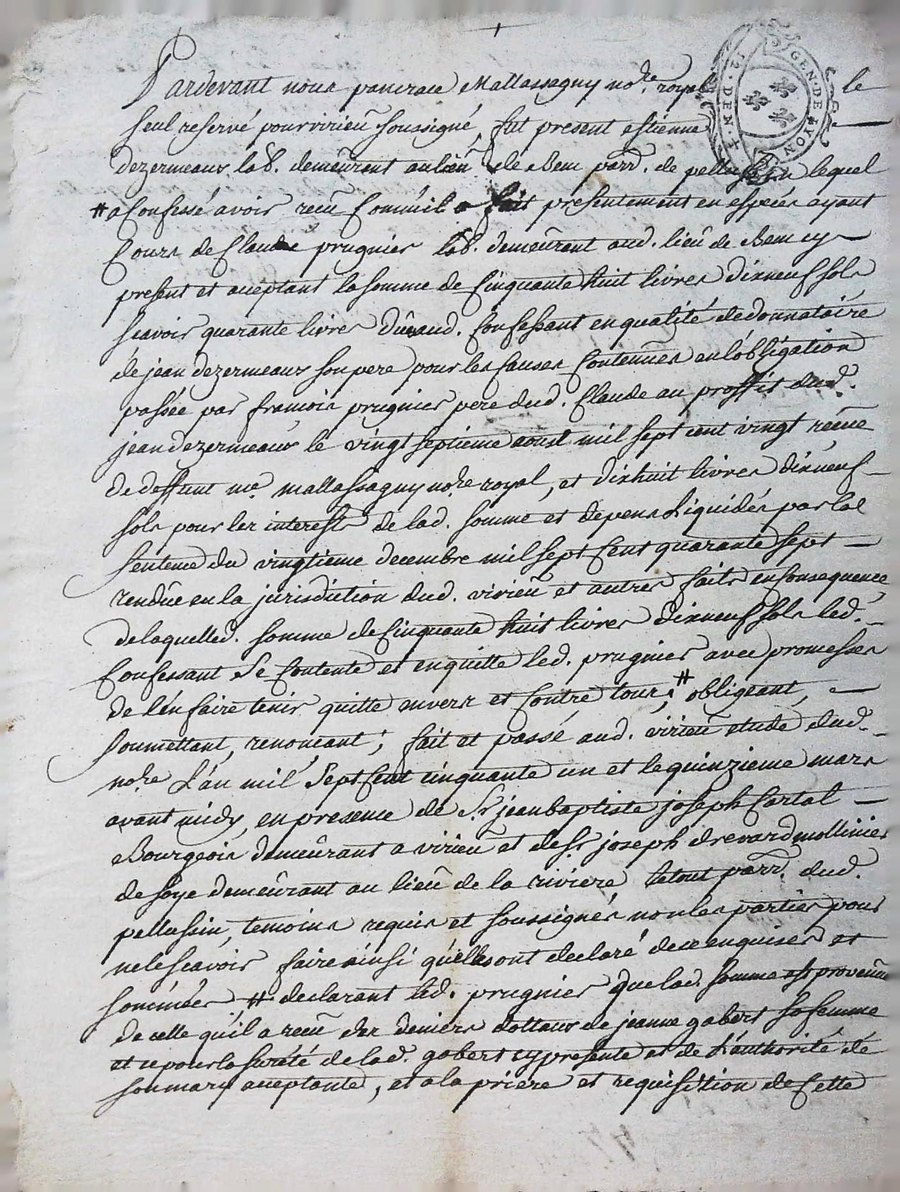 Pardevant nous pancrace Mallassagny no.re royal le
seul reservé pour virieu soussigné, fut present estienne
dezermeaux lab. demeurant au lieu de Bem parr. de pellussin lequel
# a Confessé avoir reçu Comme il a fait presentement en especes ayant
Cours de Claude prugnier lab. demeurant aud. lieu de Bem cy
present et aceptant la somme de Cinquante huit livres dixneuf sols
scavoir quarante livres dûe aud. Confessant en qualité de donnataire
de jean dezermeaux son pere pour les Causes Contenues en l'obligation
passée par francois prugnier pere dud. Claude au proffit dud.
jean dezermeaux le vingt septieme aoust mil sept cent vingt reçue
de deffunt me. mallassagny no.re royal, et dixhuit livres dixneuf
sols pour les interests de lad. somme et depens Liquidés par la
sentence du vingtieme decembre mil sept Cent quarante sept
rendüe en la jurisdiction dud. virieu et autres faits en Consequence,
de laquelled. somme de Cinquante huit livres dixneuf sols led.
Confessant Se Contente et en quitte led. prugnier avec promesses
de l'en faire tenir quitte envers et Contre tous; # obligeant,
soumettant, renonçant; fait et passé aud. virieu etude dud.
no.re L'an mil Sept Cent cinquante un et le quinzieme mars
avant midy, en presence de Sr. jean baptiste joseph Cartal
Bourgeois demeurant a virieu et de Sr. joseph drevard mollinier
de soye demeurant au lieu de la riviere, le tout parr. dud.
pellussin, temoins requis et soussignés non les parties pour
ne le scavoir faire ainsi qu'elles ont declaré de ce enquises et
sommées, # declarant led. prugnier que lad. somme est provenüe
de celle qu'il a reçu des deniers dottaux de jeanne gabert sa femme
et ce pour la sureté de lad. gabert cy presente et de l'authorité de
son mary aceptante, et a la priere et requisition de Cette
GEN. DE LYON
2. DEN.